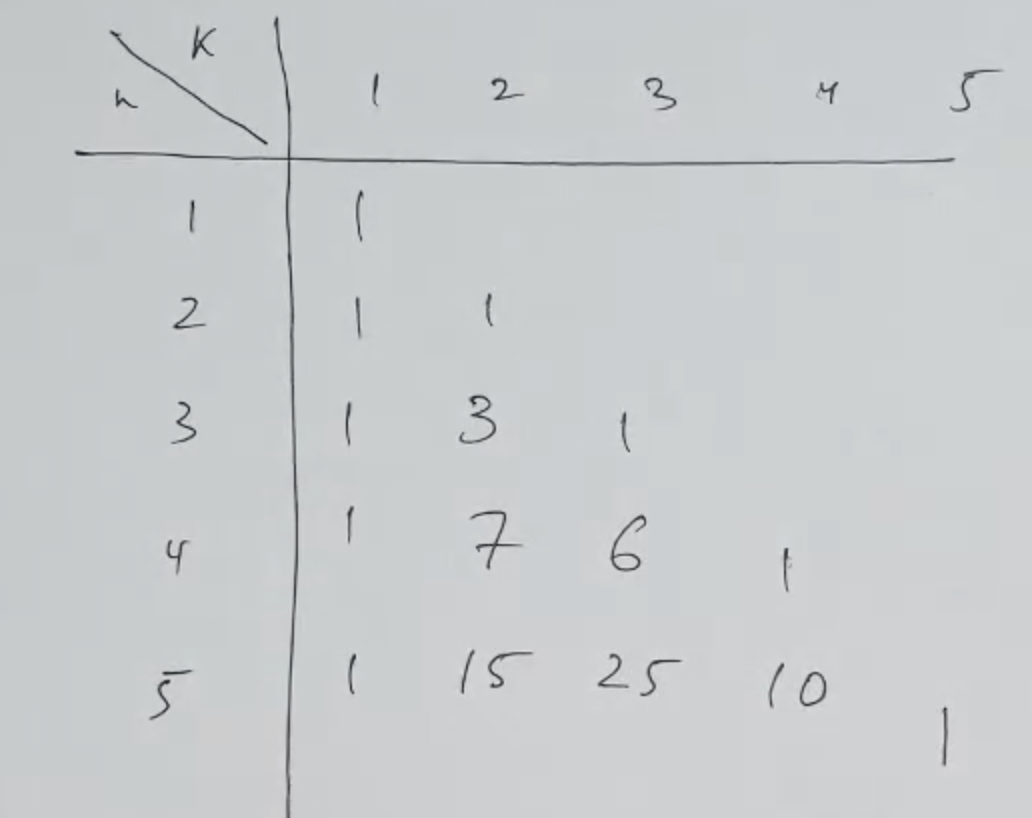 K
n 1 2 3 4 5
1 1
2 1 1
3 1 3 1
4 1 7 6 1
5 1 15 25 10 1